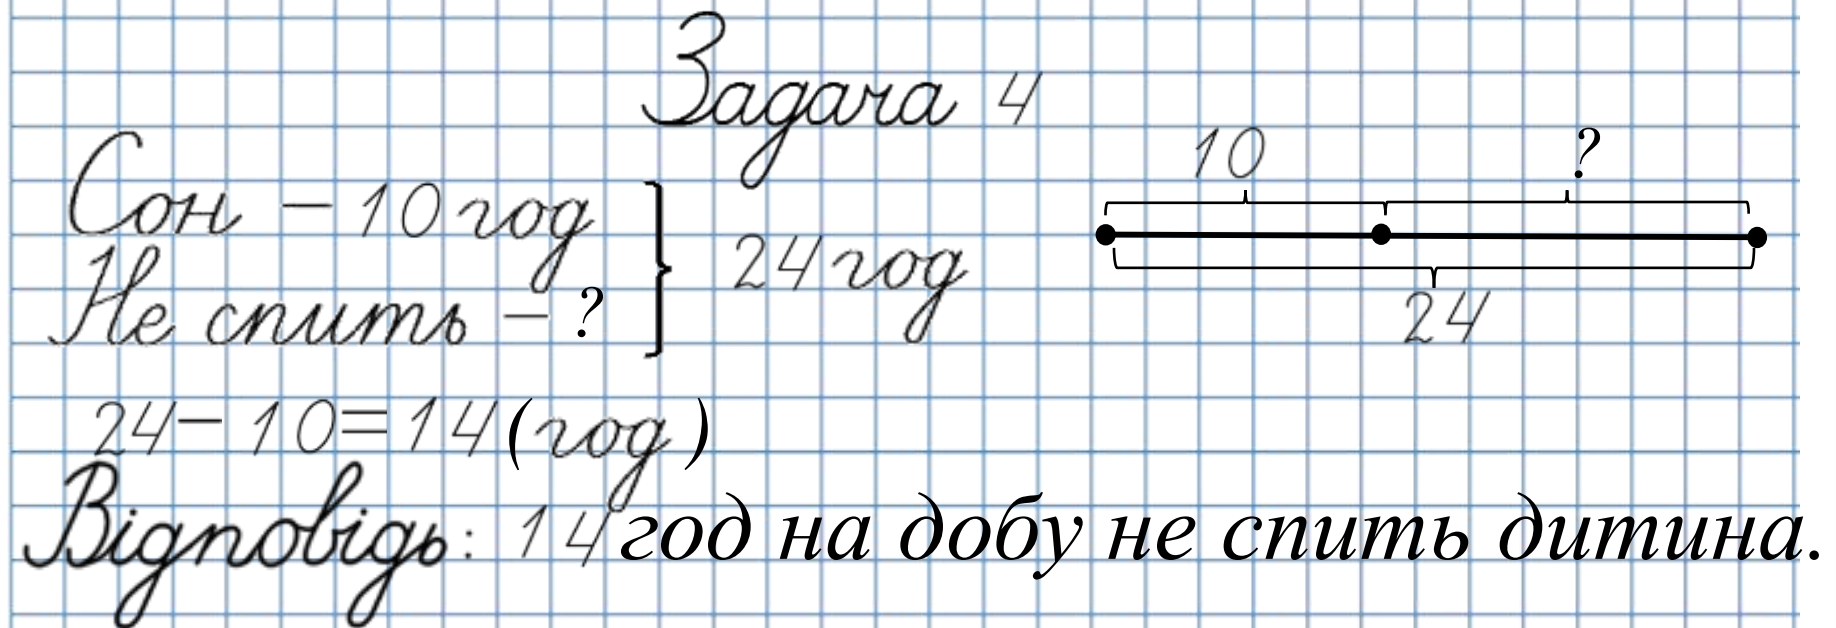 Задача 4
Сон – 10 год
Не спить – ?
24 год
10
?
24
24 – 10 = 14 (год)
Відповідь: 14 год на добу не спить дитина.